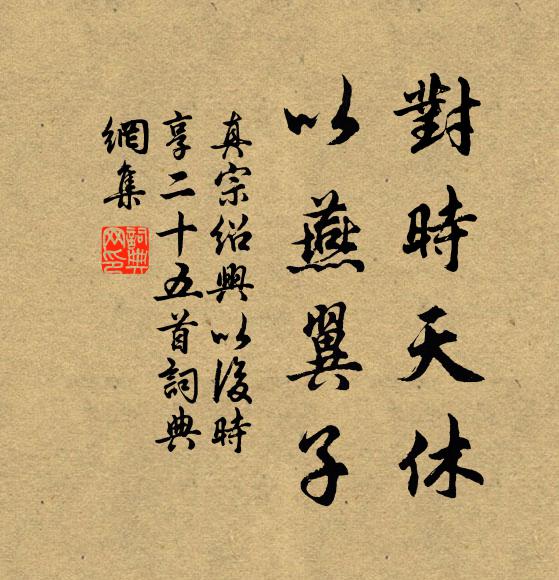 對時天休
以燕翼子
真宗紹興以後時
享二十五首詞典
網集
詞典
网印